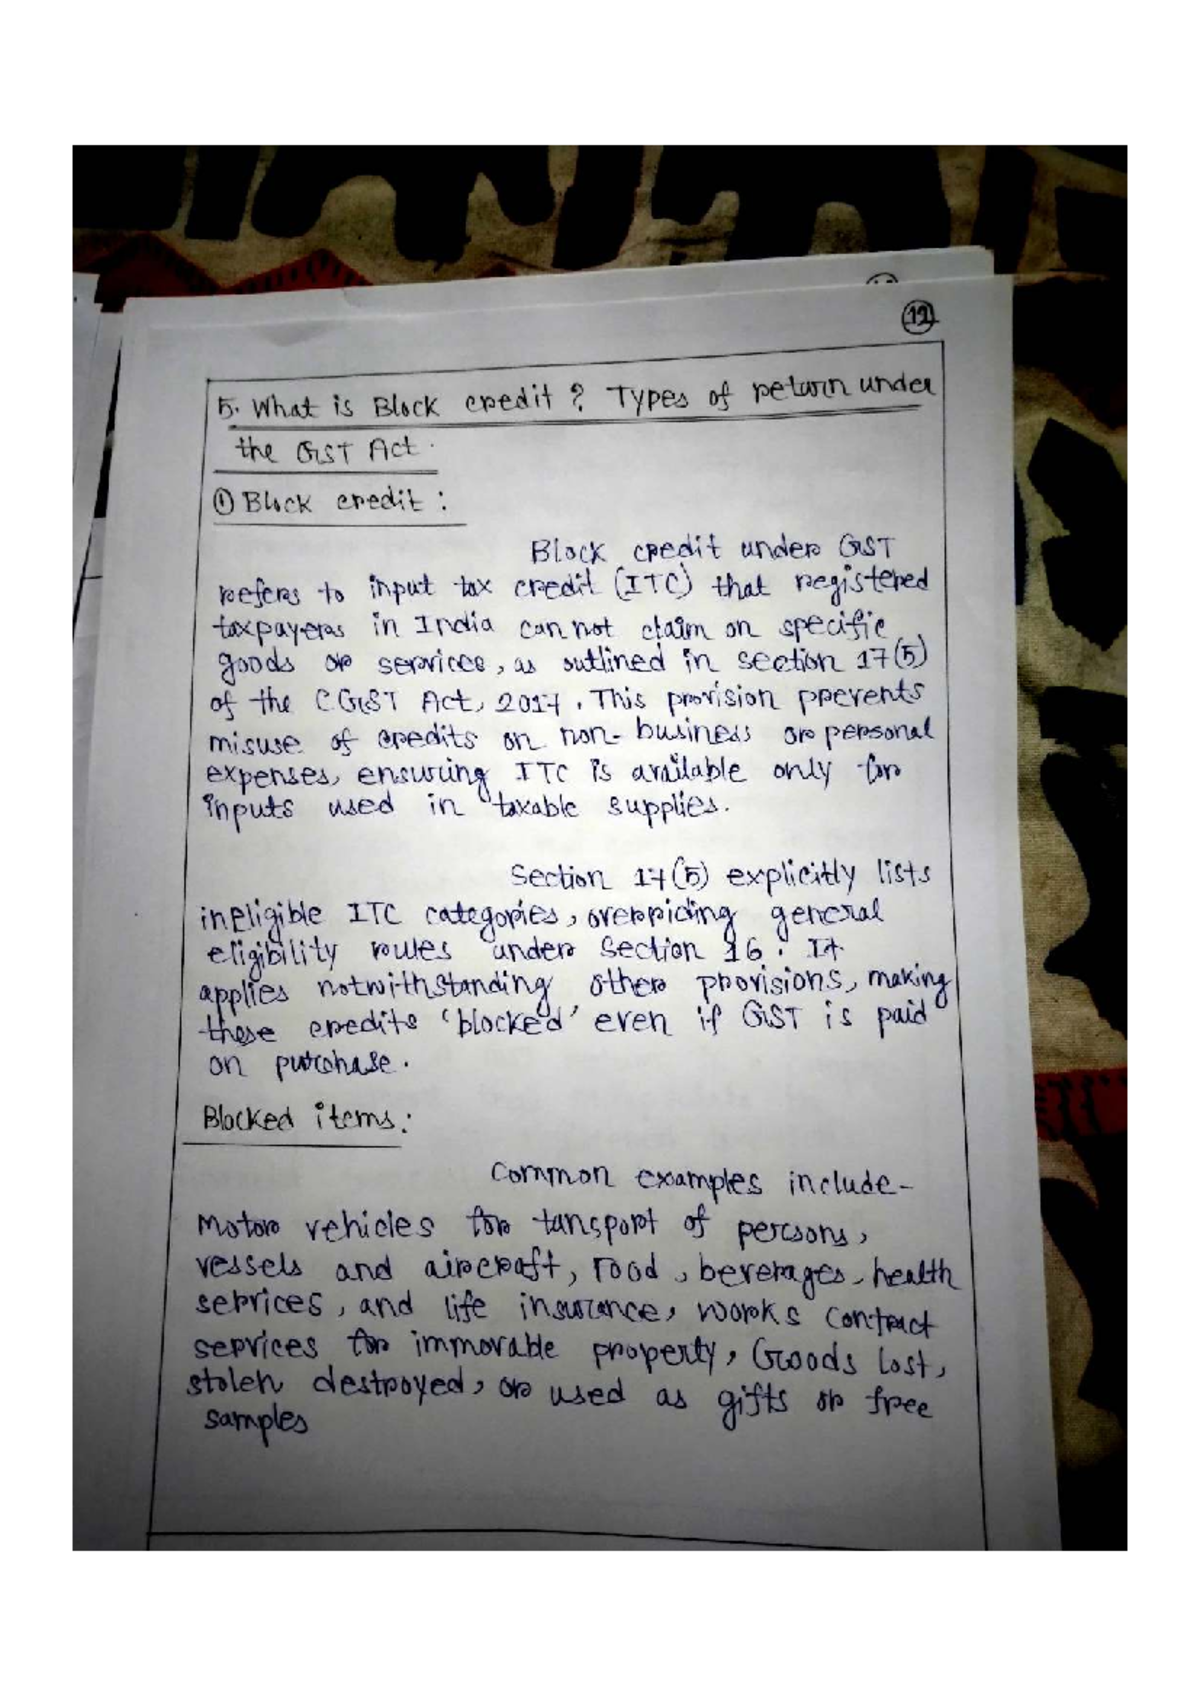 12
5. What is Block credit? Types of return under
the GST Act.
① Block credit:
Block credit under GST
refers to input tax credit (ITC) that registered
taxpayers in India can not claim on specific
goods or services, as outlined in section 17(5)
of the CGST Act, 2017. This provision prevents
misuse of credits on non-business or personal
expenses, ensuring ITC is available only for
inputs used in taxable supplies.
Section 17(5) explicitly lists
ineligible ITC categories, overriding general
eligibility rules under Section 16. It
applies notwithstanding other provisions, making
these credits 'blocked' even if GST is paid
on purchase.
Blocked items:
Common examples include-
Motor vehicles for tansport of persons,
vessels and aircraft, Food, beverages, health
services, and life insurance, works contract
services for immovable property, Goods lost,
stolen destroyed, or used as gifts or free
samples